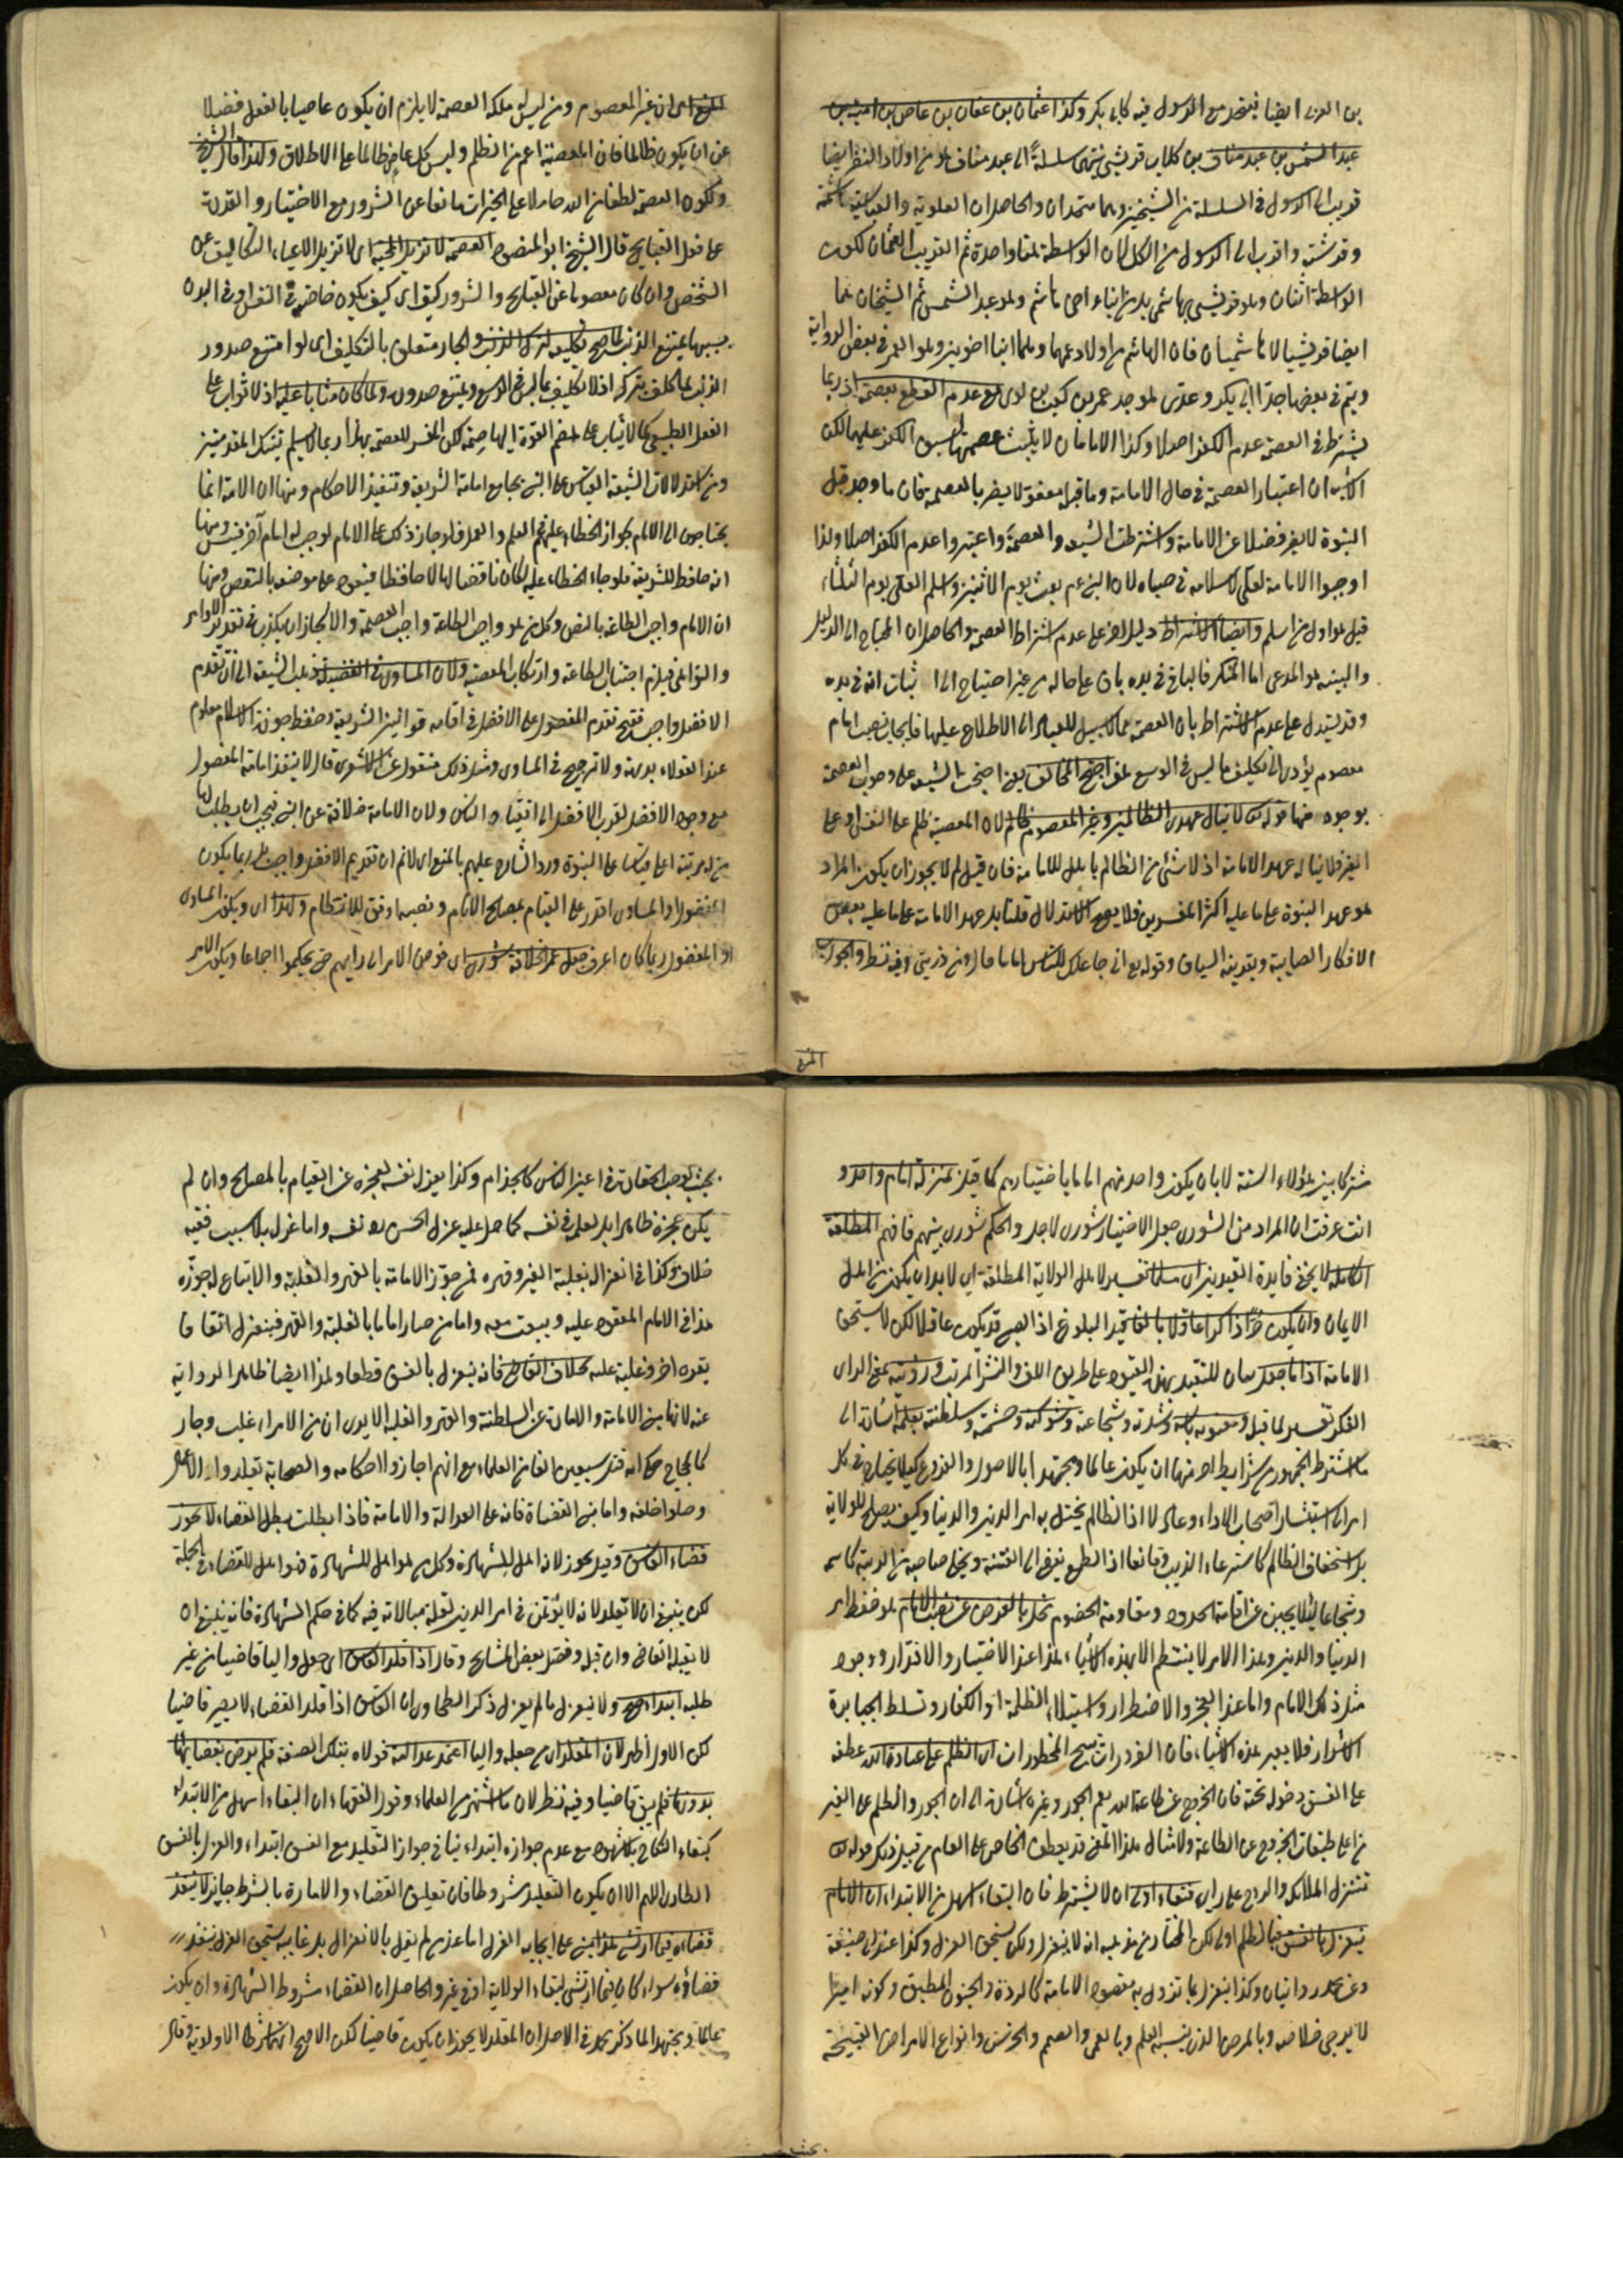 بن العزى ايضا فيتحد مع الرسول فيه كابى بكر وكذا عثمان بن عفان بن عاص بن امية بن
عبد الشمس بن عبد مناف بن كلاب قريشى ينتهى سلسلة الى عبد مناف هو من اولاد النضر ايضا
قريب الى الرسول فى السلسلة من الشيخين وهما متحدان والحاصل ان العلوية والعباسية هاشمية
وقرشية واقرب الى الرسول من الكل لان الواسطة لهما واحدة ثم القريب العثمان لكون
الواسطة اثنان وهو قريشى لا هاشمى بل من ابناء اخى هاشم وهو عبد الشمس ثم الشيخان هما
ايضا قريشيا لا هاشميان فان الهاشم من اولاد عمهما وهما ابنا اخوين وهو العم فى بعض الرواية
ويتم فى بعضها جد ابى بكر وعدى هو جد عمر بن كعب بن لوى مع عدم القطع بعصمته اذ ربما
يشترط فى العصمة عدم الكفر اصلا وكذا الامامان لا يثبت عصمتهما لسبق الكفر عليهما لكن
الاشبه ان اعتبار العصمة فى حال الامامة وما قبلها معفوة لا يضر بالعصمة فان ما وجد قبل
النبوة لا يضر فضلا عن الامامة واشترطت الشيعة العصمة واعتبروا عدم الكفر اصلا ولذا
اوجبوا الامامة لعلى لاسلامه فى صباه لان النبى عم بعث يوم الاثنين واسلم العلى يوم الثلثاء
قيل هو اول من اسلم وايضا الاشتراط دليل اخر على عدم اشتراط العصمة والحاصل ان المحتاج الى الدليل
والبينة هو المدعى اما المنكر فالباقى فى يده باق على حاله من غير احتياج الى اثبات انه فى يده
وقد يستدل على عدم الاشتراط بان العصمة مما لا سبيل للعباد الى الاطلاع عليها فايجاب نصب امام
معصوم يؤدى الى تكليف ما ليس فى الوسع احتج المخالف يعنى احتجت الشيعة على وجوب العصمة
بوجوه منها قوله تع لا ينال عهدى الظالمين وغير المعصوم ظالم لان المعصية ظلم على النفس او على
الغير فلا يناله عهد الامامة اذ لا شئ من الظالم باهل للامامة فان قيل لم لا يجوز ان يكون المراد
هو عهد النبوة على ما عليه اكثر المفسرين فلا يصح الاستدلال قلنا بل عهد الامامة على ما عليه بعض
الافكار الصايبة وبقرينة السياق وقوله تع انى جاعلك للناس اماما قال ومن ذريتى وفيه نظر والجواب
المنع
المنع اى ان غير المعصوم ومن ليس له ملكة العصمة لا يلزم ان يكون عاصيا بالفعل فضلا
عن ان يكون ظالما فان المعصية اعم من الظلم وليس كل عاص ظالما على الاطلاق ولهذا قال الشيخ
ولكون العصمة لطفا من الله حاملا على الخيرات مانعا عن الشرور مع الاختيار والقدرة
على فعل القبايح قال الشيخ ابو المنصور العصمة لا تزيل المحنة اى لا تزيل الاعياء التكاليف عن
الشخص وان كان معصوما عن القبايح والشرور كيف اى كيف يكون خاصية فى النفس او فى البدن
بسببها يمتنع الذنب لما صح تكليفه لترك الذنب والجار متعلق بالتكليف اى لو امتنع صدور
الذنب لما كلف بتركه اذ لا تكليف بما ليس فى الوسع ويمتنع صدوره ولما كان مثابا عليه اذ لا ثواب على
الفعل الطبيعى كما لا يثاب على هضم القوة الهاضمة لكن المفسر للعصمة بهذا ربما لا يسلم تينك المقدمتين
ومن استدلالات الشيعة القياس على النبى بجامع اقامة الشريعة وتنفيذ الاحكام ومنها ان الامة انما
يحتاجون الى الامام لجواز الخطاء عليهم فى العلم والعمل فلو جاز ذلك على الامام لوجب له امام آخر فيتسلسل ومنها
انه حافظ للشريعة فلو جاز الخطاء عليه لكان ناقضا لها لا حافظا فيعود على موضوعه بالنقض ومنها
ان الامام واجب الطاعة بالنص وكل من هو واجب الطاعة واجب العصمة والا لجاز ان يكذب فى تقرير الاوامر
والنواهى فيلزم اجتناب الطاعة وارتكاب المعصية ولان المساوى فى الفضيلة ذهبت الشيعة الى ان تقدم
الافضل واجب فقبح تقدم المفضول على الافضل فى اقامة قوانين الشريعة وحفظ حوزة الاسلام معلوم
عند العقلاء بديهة ولا ترجيح فى المساوى ومثل ذلك منقول عن الاشعرى قال لا ينعقد امامة المفضول
مع وجود الافضل لقرب الافضل الى انقياد الناس ولان الامامة خلافة عن النبى فيجب ان يطلب لها
من له رتبة اعلى قياسا على النبوة ورد الشارح عليهم بالمنع اى لا نم ان تقديم الافضل واجب بل ربما يكون
المفضول او المساوى اقدر على القيام بمصالح الانام ونصبه اوفق للانتظام ولهذا اى ولكون المساوى
او المفضول ربما كان اعرف جعل عمر الخلافة شورى اى فوض الامر الى رايهم حتى يحكموا اجماعا ويكون الامر
مشتركا بين هؤلاء الستة لا بان يكون واحد منهم اماما باختيارهم كما قيل بمنزلة امام واحد و
انت عرفت ان المراد من الشورى جعل الاختيار شورى لاجل والحكم شورى بينهم فافهم المطلقة
الكاملة لا يخفى فايدة القيدين اى مسلما تفسير لاهل الولاية المطلقة اى لا بد ان يكون من اهل
الايمان وان يكون حرا ذاكرا عاقلا بالغا قيد البلوغ اذ الصبى قد يكون عاقلا لكن لا يستحق
الامامة اذا ما جعل بيان للتقييد بهذه القيود على طريق اللف والنشر المرتب ورؤيته بمعنى الراى
الفكر تفسير لما قبله ومعونة باسه وشدته وشجاعته وشوكته وحشمته وسلطنته بعلمه اشارة الى
ما اشترط الجمهور من شرايط اخر منها ان يكون عالما ومجتهدا بالاصول والفروع كيلا يحتاج فى كل
امر الى استفسار اصحاب الاراء وعادلا اذ الظالم يختل به امر الدين والدنيا وكيف يصلح للولاية
بل استخفاف الظالم كاسترعاء الذيب وقانعا اذ الطمع يفضى الى الفتنة ويخل صاحبه من الديانة كاسمه
وشجاعا لئلا يجبن عن اقامة الحدود ومقاومة الخصوم مخل بالغرض عن نصب الامام هو حفظ امر
الدنيا والدين وهذا الامر لا ينتظم الا بهذه الاشياء هذا عند الاختيار والاقتدار ووجود
مثل ذلك الامام واما عند العجز والاضطرار واستيلاء الظلمة او الكفار وتسلط الجبابرة
الاشرار فلا يعبر هذه الاشياء فان الضرورات تبيح المحظورات اى الظلم على عباد الله عطفه
على الفسق دخوله تحته فان الخروج عن طاعة الله يعم الجور وغيره اشارة الى ان الجور والظلم على الغير
من اعلى طبقات الخروج عن الطاعة ولامثال هذا المعنى قد يعطف الخاص على العام من قبيل ذلك قوله تع
تنزل الملائكة والروح على راى فبقاء اولى ان لا يشترط فان البقاء اسهل من الابتداء ان الامام
ينعزل بالفسق فبالظلم اولى لكن المختار من مذهبه انه لا ينعزل ولكن يستحق العزل وكذا عند ابى حنيفة
وعن محمد روايتان وكذا ينعزل بما تزول به مقصود الامامة كالردة والجنون المطبق وكونه اميرا
لا يرجى خلاصه وبالمرض الذى ينسيه العلم وبالعمى والصمم والخرس وانواع الامراض القبيحة
بحيث
بحيث يوجب الحقارة فى اعين الناس كالجذام وكذا يعزل نفسه لعجزه عن القيام بالمصالح وان لم
يكن عجزه ظاهرا بل لعله فى نفسه كما حمل عليه عزل الحسن رض نفسه واما عزله بلا سبب ففيه
خلاف وكذا فى انعزاله بغلبة الغير وقهره فمن جوز الامامة بالقهر والغلبة والاتباع له جوزه
هذا فى الامام المعقود عليه وبيعت معه واما من صار اماما بالغلبة والقهر فينعزل اتفاقا
بقهره اخر وغلبة عليه بخلاف القاضى فانه ينعزل بالفسق قطعا ولهذا ايضا ظاهر الرواية
عنه لانها من الامامة والامارة عن السلطنة والقهر والغلبة الا يرى ان من الامراء غلب وجار
كالحجاج حكى انه قتل سبعين الفا من العلماء مع انهم اجازوا احكامه والصحابة تقلدوا الاعمال
وصلوا خلفه واما مبنى القضاة فانه على العدالة والامامة فاذا بطلت بطل القضاء لا يجوز
قضاء الفاسق وقيل يجوز لانه اهل للشهادة وكل من هو اهل للشهادة فهو اهل للقضاء فى الجملة
لكن ينبغى ان لا يقلد لانه لا يؤتمن فى امر الدين لقلة مبالاته فيه كما فى حكم الشهادة فانه ينبغى ان
لا يقبله القاضى وان قبل وفصل بعض المشايخ وقال اذا قلد الفاسق اى جعل واليا قاضيا من غير
طلبه ابتداء صح ولا ينعزل ما لم يعزل ذكر الطحاوى ان الفاسق اذا قلد القضاء لا يصير قاضيا
لكن الاول اظهر لان المقلد اى من جعله واليا اعتمد عدالته فولاه بتلك الصفة فلم يرض بقضائه
بدونها فلم يبق قاضيا وفيه نظر لان ما اشتهر من العلماء وقول الفقهاء ان البقاء اسهل من الابتداء
كبقاء النكاح بلا شهود مع عدم جوازه ابتداء ينافى جواز التقليد مع الفسق ابتداء والعزل بالفسق
الطارى اللهم الا ان يكون التقليد مشروطا فان تعليق القضاء والامارة بالشرط جايز لا ينفذ
قضاءه فيما ارتشى هذا مبنى على ايجابه العزل اما عند من لم يقل بالانعزال بل غايته يستحق العزل ينفذ
قضاؤه سواء كان فيما ارتشى لبقاء الولاية او فى غيره والحاصل ان القضاء مشروط الشهادة وان يكون
عالما ومجتهدا لما ذكر محمد فى الاصل ان المقلد لا يجوز ان يكون قاضيا لكن الاصح انه شرط الاولوية وقال